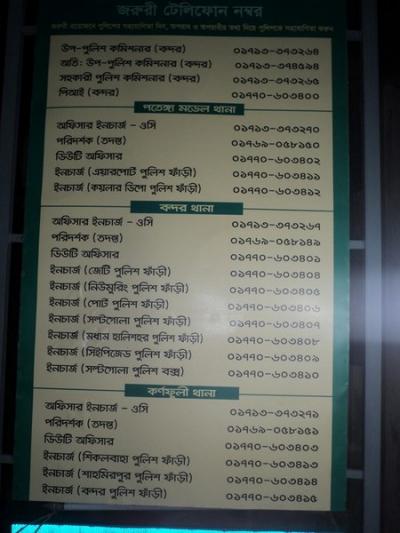 জরুরী টেলিফোন নম্বর
জরুরী প্রয়োজনে পুলিশের সহযোগিতা নিন, অপরাধ ও অপরাধীর তথ্য দিয়ে পুলিশকে সহযোগিতা করুন
উপ-পুলিশ কমিশনার (বন্দর) ০১৭১৩-৩৭৩২৬৪
অতি: উপ-পুলিশ কমিশনার (বন্দর) ০১৭১৩-৩৭৪৫৯৪
সহকারী পুলিশ কমিশনার (বন্দর) ০১৭১৩-৩৭৩২৬৫
পিআই (বন্দর) ০১৭৭০-৬০৩৪০০
পতেঙ্গা মডেল থানা
অফিসার ইনচার্জ - ওসি ০১৭১৩-৩৭৩২৭০
পরিদর্শক (তদন্ত) ০১৭৬৯-০৫৮১৫০
ডিউটি অফিসার ০১৭৭০-৬০৩৪০২
ইনচার্জ (এয়ারপোর্ট পুলিশ ফাঁড়ী) ০১৭৭০-৬০৩৪১১
ইনচার্জ (কয়লার ডিপো পুলিশ ফাঁড়ী) ০১৭৭০-৬০৩৪১২
বন্দর থানা
অফিসার ইনচার্জ - ওসি ০১৭১৩-৩৭৩২৬৭
পরিদর্শক (তদন্ত) ০১৭৬৯-০৫৮১৪৯
ডিউটি অফিসার ০১৭৭০-৬০৩৪০১
ইনচার্জ (জেটি পুলিশ ফাঁড়ী) ০১৭৭০-৬০৩৪০৪
ইনচার্জ (নিউমুরিং পুলিশ ফাঁড়ী) ০১৭৭০-৬০৩৪০৫
ইনচার্জ (পোর্ট পুলিশ ফাঁড়ী) ০১৭৭০-৬০৩৪০৬
ইনচার্জ (সল্টগোলা পুলিশ ফাঁড়ী) ০১৭৭০-৬০৩৪০৭
ইনচার্জ (মধ্যম হালিশহর পুলিশ ফাঁড়ী) ০১৭৭০-৬০৩৪০৮
ইনচার্জ (সিইপিজেড পুলিশ ফাঁড়ী) ০১৭৭০-৬০৩৪০৯
ইনচার্জ (সল্টগোলা পুলিশ বক্স) ০১৭৭০-৬০৩৪১০
কর্ণফুলী থানা
অফিসার ইনচার্জ - ওসি ০১৭১৩-৩৭৩২৭১
পরিদর্শক (তদন্ত) ০১৭৬৯-০৫৮১৫১
ডিউটি অফিসার ০১৭৭০-৬০৩৪০৩
ইনচার্জ (শিকলবাহা পুলিশ ফাঁড়ী) ০১৭৭০-৬০৩৪১৩
ইনচার্জ (শাহমিরপুর পুলিশ ফাঁড়ী) ০১৭৭০-৬০৩৪১৪
ইনচার্জ (বন্দর পুলিশ ফাঁড়ী) ০১৭৭০-৬০৩৪১৫